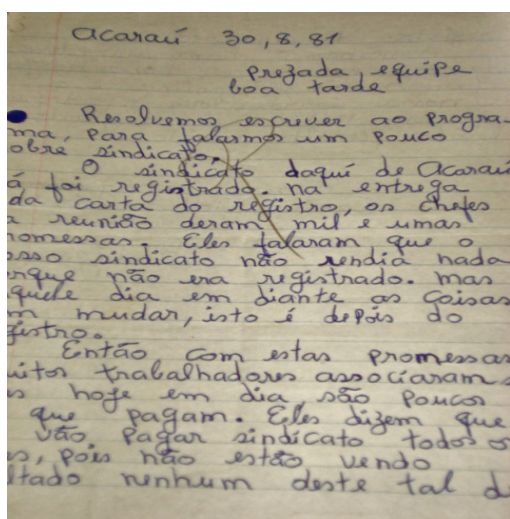 Acaraú 30,8,81
prezada equipe
boa tarde
Resolvemos escrever ao progra-
ma, para falarmos um pouco
obre sindicato.
O sindicato daquí de Acaraú
á foi registrado. na entrega
da carta do registro, os chefes
a reunião deram mil e umas
romessas. Eles falaram que o
osso sindicato não rendia nada
orque não era registrado. mas
quele dia em diante as coisas
m mudar, isto é depois do
gistro.
Então com estas promessas
uitos trabalhadores associaram
s hoje em dia são poucos
que pagam. Eles dizem que
vão pagar sindicato todos os
es, pois não estão vendo
ltado nenhum deste tal d